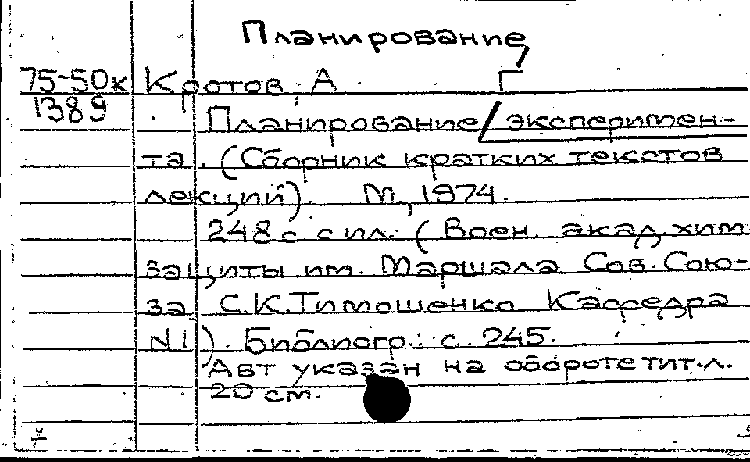 Планирование
75-50к Костов, А
1389 Планирование эксперимен-
та. (Сборник кратких текстов
лекций). М, 1974.
248 с с ил. (Воен. акад. хим.
защиты им. Маршала Сов. Сою-
за С.К. Тимошенко Кафедра
N 1). Библиогр.: с. 245.
Авт указан на обороте тит. л.
20 см.